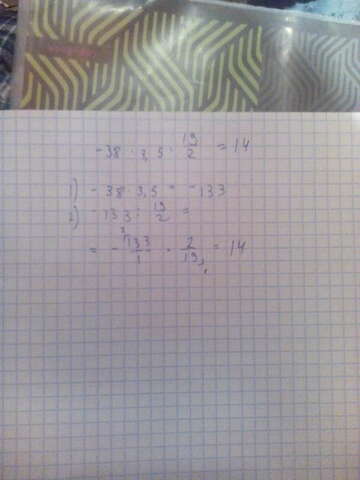 -38 · 3,5 : 19/2 = 14
1) -38 · 3,5 = -133
2) -133 : 19/2 =
= - 133/1 · 2/19 = 14